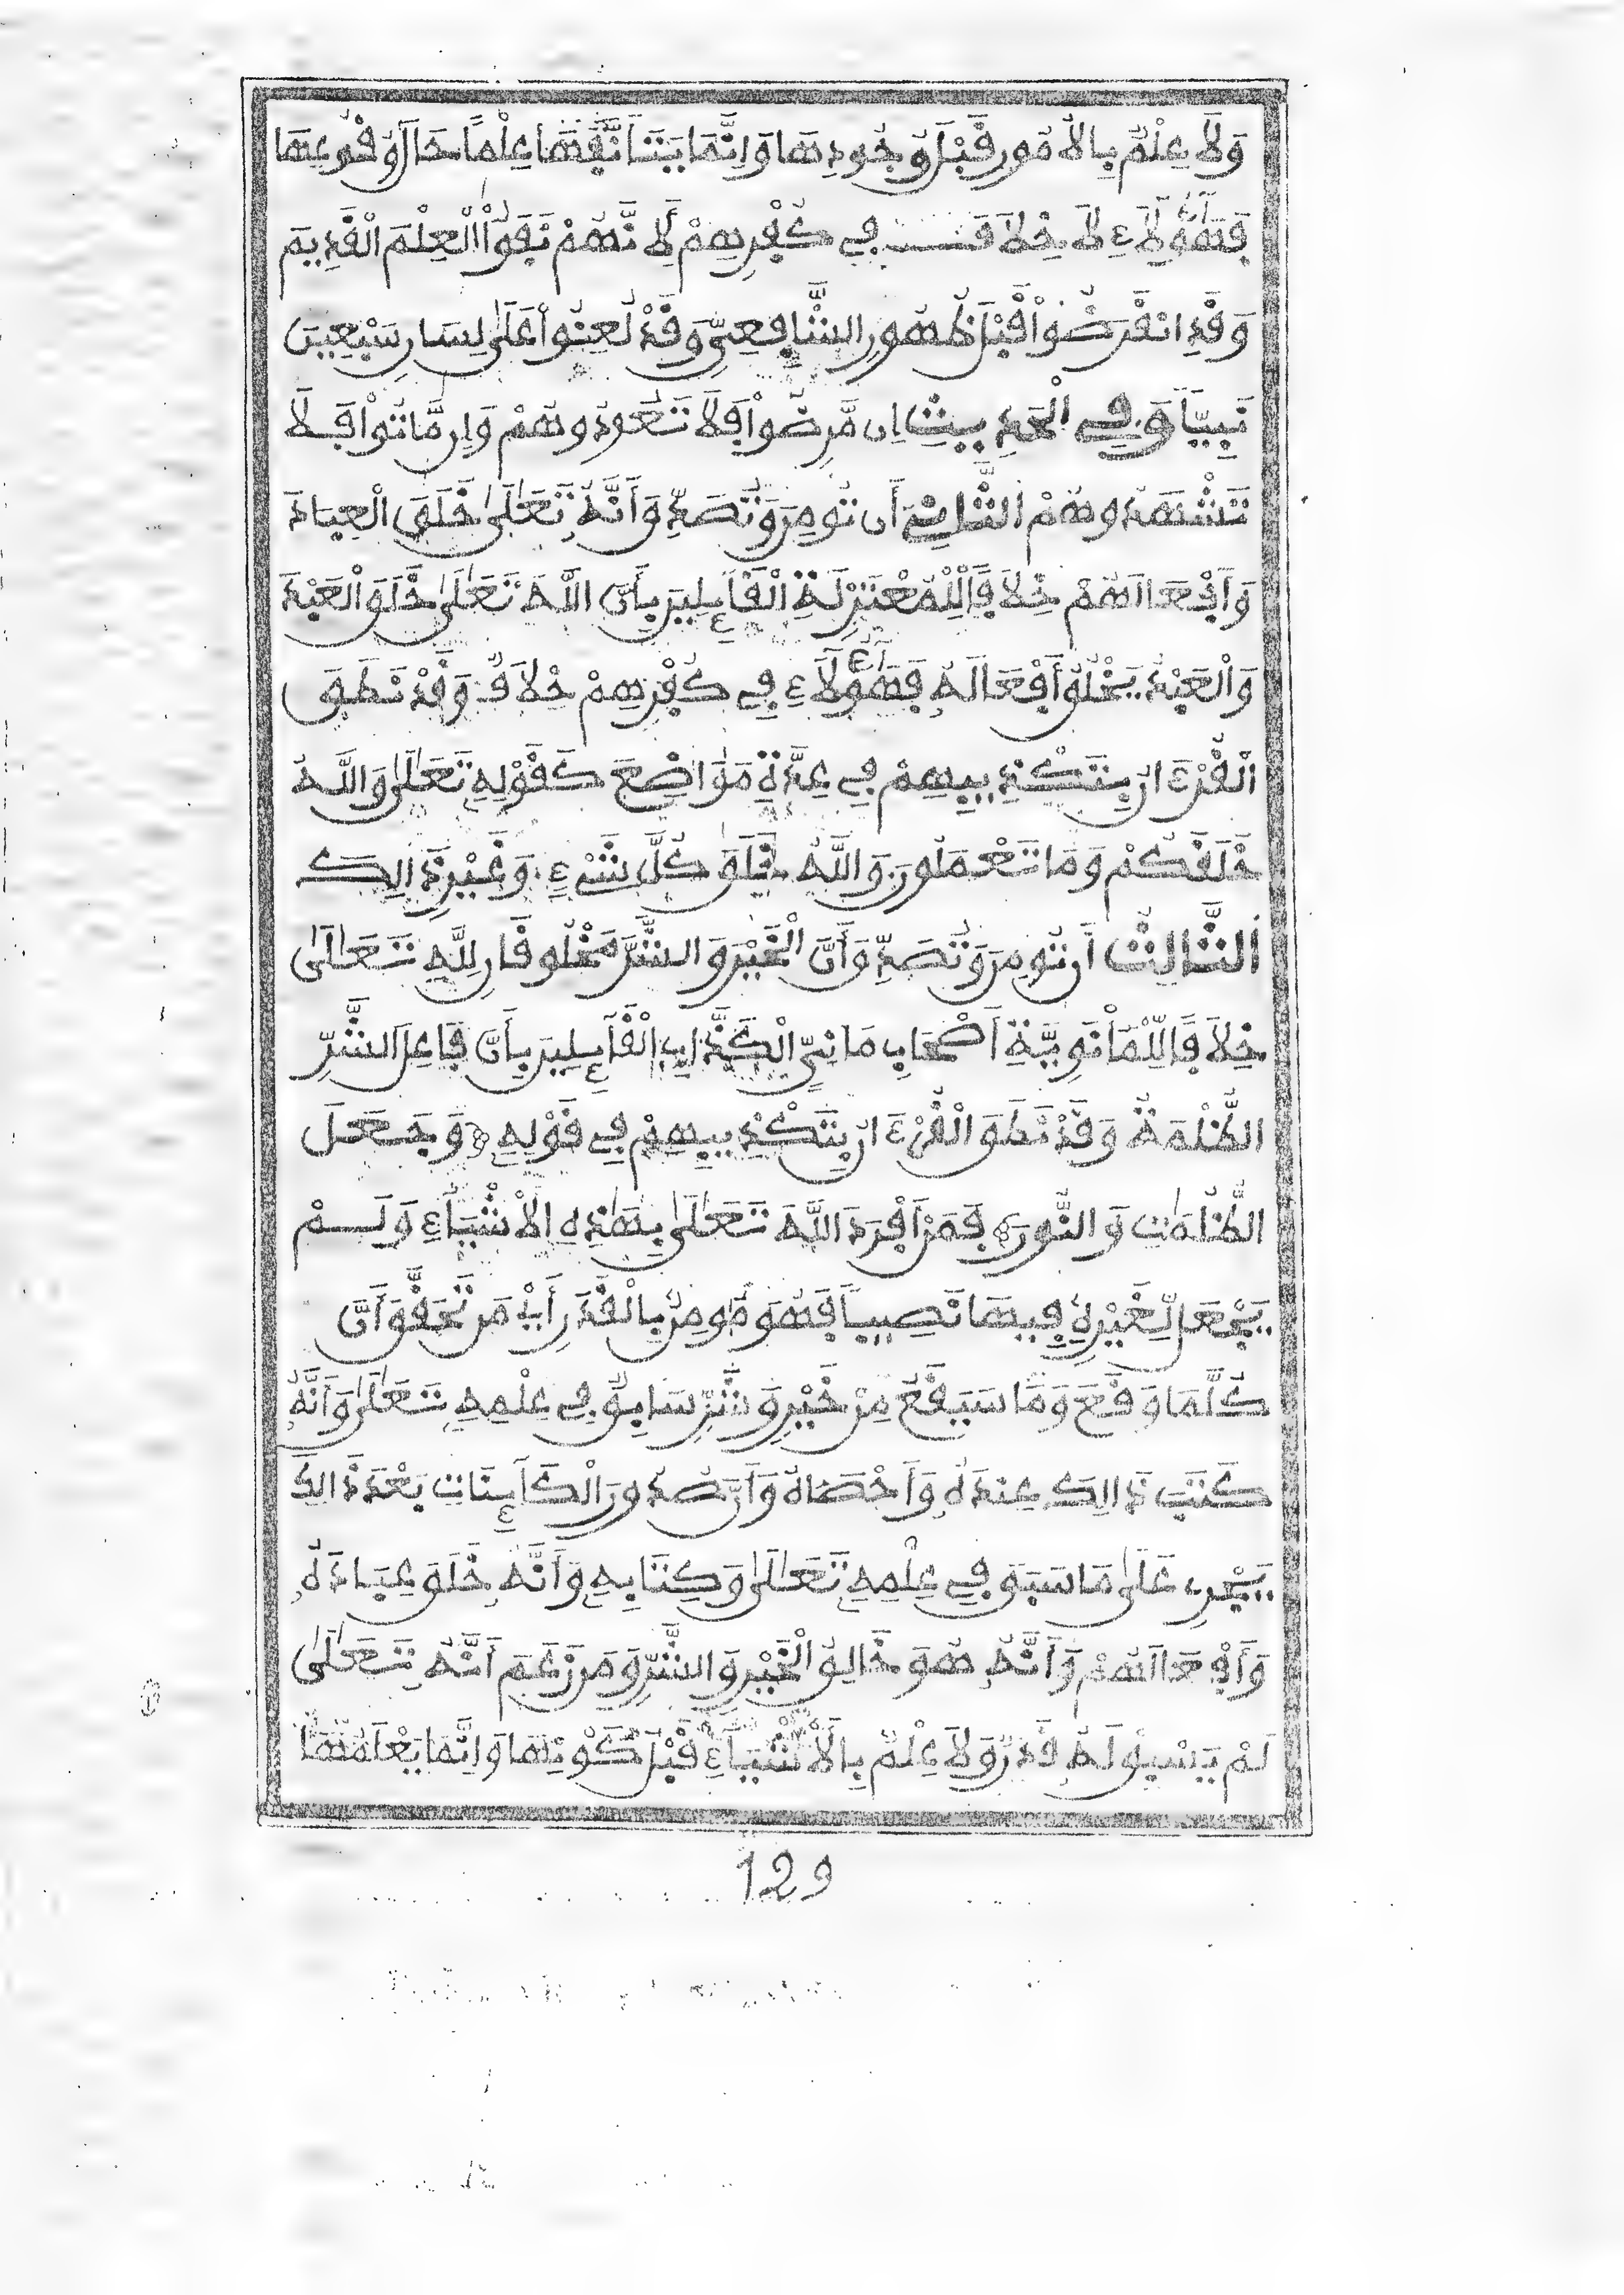 وَلَا عِلْمٌ بِالْأُمُورِ قَبْلَ وُجُودِهَا وَإِنَّمَا يَتَأَنَّفُهَا عِلْمًا حَالَ وُقُوعِهَا
فَهَٰؤُلَاءِ لَا خِلَافَ فِي كُفْرِهِمْ لِأَنَّهُمْ نَفَوُا الْعِلْمَ الْقَدِيمَ
وَقَدِ انْقَرَضُوا قَبْلَ ظُهُورِ الشَّافِعِيِّ وَقَدْ لُعِنُوا عَلَىٰ لِسَانِ سَبْعِينَ
نَبِيّاً وَفِي الْحَدِيثِ إِن مَّرِضُوا فَلَا تَعُودُوهُمْ وَإِن مَّاتُوا فَلَا
تَشْهَدُوهُمْ الثَّانِي أَن تُومِنَ وَتُصَدِّقَ أَنَّهُ تَعَالَىٰ خَلَقَ الْعِبَادَ
وَأَفْعَالَهُمْ خِلَافاً لِلْمُعْتَزِلَةِ الْقَائِلِينَ بِأَنَّ اللَّهَ تَعَالَىٰ خَلَقَ الْعَبْدَ
وَالْعَبْدُ يَخْلُقُ أَفْعَالَهُ فَهَٰؤُلَاءِ فِي كُفْرِهِمْ خِلَافٌ وَقَدْ نَطَقَ
الْقُرْءَانُ بِتَكْذِيبِهِمْ فِي عِدَّةِ مَوَاضِعَ كَقَوْلِهِ تَعَالَىٰ وَاللَّهُ
خَلَقَكُمْ وَمَا تَعْمَلُونَ وَاللَّهُ خَٰلِقُ كُلِّ شَيْءٍ وَغَيْرِ ذَالِكَ
الثَّالِثُ أَن تُومِنَ وَتُصَدِّقَ أَنَّ الْخَيْرَ وَالشَّرَّ مَخْلُوقَانِ لِلَّهِ تَعَالَىٰ
خِلَافاً لِلْمَانَوِيَّةِ أَصْحَابِ مَانِي الْكَذَّابِ الْقَائِلِينَ بِأَنَّ فَاعِلَ الشَّرِّ
الظُّلْمَةُ وَقَدْ نَطَقَ الْقُرْءَانُ بِتَكْذِيبِهِمْ فِي قَوْلِهِ وَجَعَلَ
الظُّلُمَٰتِ وَالنُّورَ فَمَنْ أَفْرَدَ اللَّهَ تَعَالَىٰ بِهَٰذِهِ الْأَشْيَاءِ وَلَمْ
يَجْعَلْ لِغَيْرِهِ فِيهَا نَصِيباً فَهُوَ مُومِنٌ بِالْقَدَرِ أَيْ مَن تَحَقَّقَ أَنَّ
كُلَّمَا وَقَعَ وَمَا سَيَقَعُ مِنْ خَيْرٍ وَشَرٍّ سَابِقٌ فِي عِلْمِهِ تَعَالَىٰ وَأَنَّهُ
كَتَبَ ذَالِكَ عِندَهُ وَأَحْصَاهُ وَأَنَّ صُدُورَ الْكَائِنَاتِ بَعْدَ ذَالِكَ
يَجْرِي عَلَىٰ مَا سَبَقَ فِي عِلْمِهِ تَعَالَىٰ وَكِتَابِهِ وَأَنَّهُ خَلَقَ عِبَادَهُ
وَأَفْعَالَهُمْ وَأَنَّهُ هُوَ خَالِقُ الْخَيْرِ وَالشَّرِّ وَمَن زَعَمَ أَنَّهُ تَعَالَىٰ
لَمْ يَسْبِقْ لَهُ قَدَرٌ وَلَا عِلْمٌ بِالْأَشْيَاءِ قَبْلَ كَوْنِهَا وَإِنَّمَا يَعْلَمُهَا
129